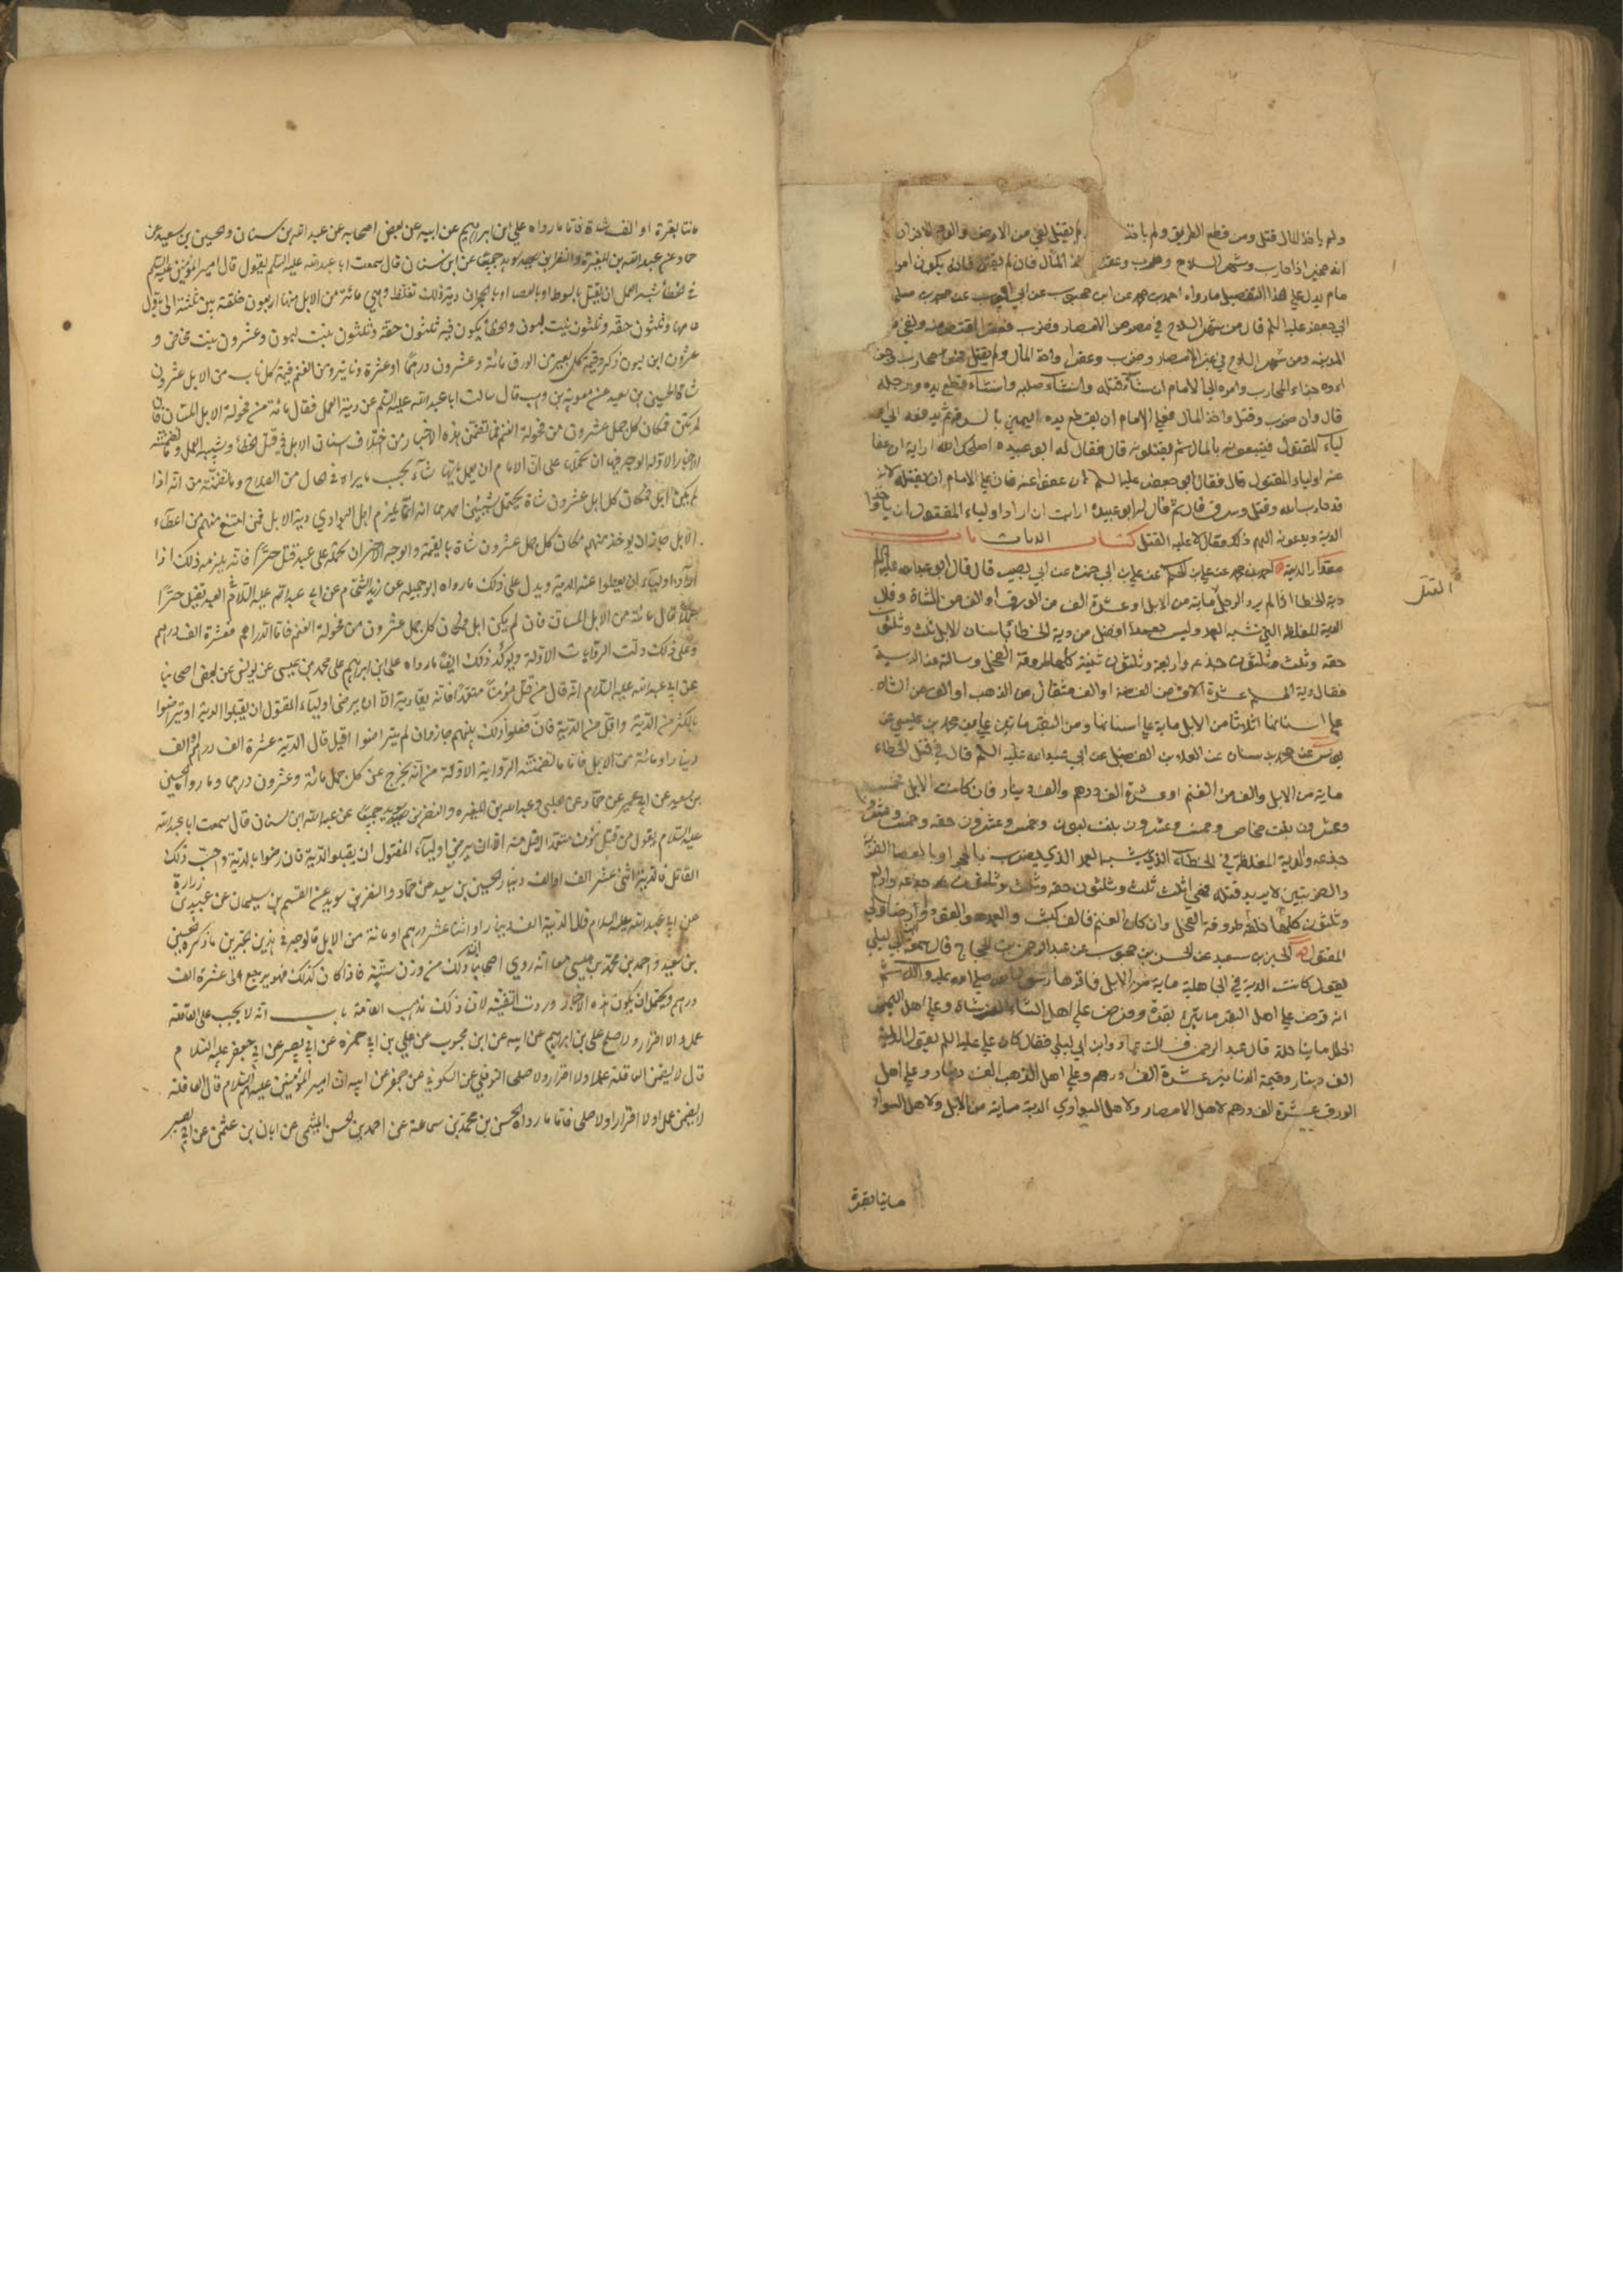 ولم ياخذ المال قتل ومن قطع الطريق ولم ياخذ ولم يقتل نفي من الارض والوجه الاخر ان
انه مخير اذا حارب وشهر السلاح وضرب وعقر واخذ المال فان لم يقتل فانه يكون امر
مام يدل علي هذا التفصيل ما رواه احمد بن محمد عن ابن محبوب عن ابي ايوب عن محمد بن مسلم
ابي جعفر عليه السلم قال من شهر السلاح في مصر من الامصار وضرب فعقر اقتص منه ونفي من
المدينه ومن شهر السلاح في غير الامصار وضرب وعقر واخذ المال ولم يقتل فهو محارب وجزا
ءه جزاء المحارب وامره الي الامام ان شاء قتله وان شاء صلبه وان شاء قطع يده ورجله
قال وان ضرب وقتل واخذ المال فعلي الامام ان يقطع يده اليميني بالسرقه ثم يدفعه الي او
لياء المقتول فيتبعونه بالمال ثم يقتلونه قال فقال له ابو عبيده اصلحك الله ارايت ان عفا
عنه اولياء المقتول قال فقال ابو جعفر عليه السلم ان عفوا عنه فان علي الامام ان يقتله لانه
قد حارب الله وقتل وسرق قال ثم قال له ابو عبيده ارايت ان اراد اولياء المقتول ان ياخذوا
الدية ويدعونه الهم ذلك فقال لا عليه القتل كتاب الديات باب
مقدار الدية احمد بن محمد عن علي بن الحكم عن علي بن ابي حمزه عن ابي بصير قال قال ابو عبد الله عليه السلم
القتل
دية الخطا اذا لم يرد الرجل ماية من الابل او عشرة الف من الورق او الف من الشاة وقال
الدية المغلظه التي تشبه العمد وليس بعمد افضل من دية الخطا باسنان الابل ثلث وثلثون
حقه وثلث وثلثون جذعه واربعة وثلثون ثنية كلها طروقة الفحل وسالته عن الدية
فقال دية المسلم عشرة الاف من الفضه او الف مثقال من الذهب او الف من الشاه
علي اسنانها اثلاثا من الابل ماية علي اسنانها ومن البقر مايتين علي بن محمد بن عيسي عن
يونس عن محمد بن سنان عن العلاء بن الفضيل عن ابي عبد الله عليه السلم قال في قتل الخطاء
ماية من الابل والف من الغنم او عشرة الف درهم والف دينار فان كانت الابل فخمس
وعشرون بنت مخاض وخمس وعشرون بنت لبون وخمس وعشرون حقه وخمس وعشرون
جذعه والدية المغلظة في الخطاء الذي يشبه العمد الذي يضرب بالحجر او بالعصا الضربة
والضربتين لا يريد قتله فهي اثلاث ثلث وثلثون حقه وثلث وثلثون جذعه واربع
وثلثون كلها خلفة طروقة الفحل وان كان الغنم فالف كبش والعمد هو القود او رضا ولي
المقتول الحسين بن سعيد عن الحسن بن محبوب عن عبد الرحمن بن الحجاج قال سمعت ابن ابي ليلي
يقول كانت الدية في الجاهلية ماية من الابل فاقرها رسول الله صلي الله عليه واله ثم
انه فرض علي اهل البقر مايتي بقرة وفرض علي اهل الشاء الف شاة وعلي اهل اليمن
الحلل مايتا حلة قال عبد الرحمن فسالت عما روا ابن ابي ليلي فقال كان علي عليه السلم يقول الدية
الف دينار وقيمة الدنانير عشرة الف درهم وعلي اهل الذهب الف دينار وعلي اهل
الورق عشرة الف درهم لاهل الامصار ولاهل البوادي الدية ماية من الابل ولاهل السواد
مايتا بقرة
مائتا بقرة او الف شاة فاما ما رواه علي بن ابراهيم عن ابيه عن بعض اصحابه عن عبد الله بن سنان والحسين بن سعيد عن
حماد عن عبد الله بن المغيرة والنضر بن سويد جميعا عن ابن سنان قال سمعت ابا عبد الله عليه السلم يقول قال امير المؤمنين عليه السلم
في الخطأ شبه العمد ان يقتل بالسوط او بالعصا او بالحجر ان دية ذلك تغلظ وهي مائة من الابل منها اربعون خلفة بين ثنية الي بازل
عامها وثلثون حقه وثلثون بنت لبون والخطأ يكون فيه ثلثون حقة وثلثون بنت لبون وعشرون بنت مخاض و
عشرون ابن لبون ذكر وقيمة كل بعير من الورق مائة وعشرون درهما او عشرة دنانير ومن الغنم قيمة كل ناب من الابل عشرون
شاة الحسين بن سعيد عن معوية بن وهب قال سالت ابا عبد الله عليه السلم عن دية العمد فقال مائة من فحولة الابل المسان فان
لم يكن فمكان كل جمل عشرون من فحولة الغنم فما تضمن هذه الاخبار من اختلاف اسنان الابل في قتل الخطأ وشبيه العمد وتضمنته
الاخبار الاولة الوجه فيها ان نحملها علي ان الامام ان يعمل بايها شاء بحسب ما يراه في الحال من الصلاح وما تضمنته من انه اذا
لم يكن ابل فمكان كل ابل عشرون شاة يحتمل شيئين احدهما انه انما يلزم اهل البوادي دية الابل فمن امتنع منهم من اعطاء
الابل جاز ان يوخذ منهم مكان كل جمل عشرون شاة بالقيمة والوجه الاخر ان نحمله علي عبد قتل حرا فانه يلزمه ذلك اذا
اراد اولياءه ان يعطوا عنه الدية ويدل علي ذلك ما رواه ابو جميله عن زيد الشحام عن ابي عبد الله عليه السلام في العبد يقتل حرا
عمدا قال مائة من الابل المسان فان لم يكن ابل فمكان كل جمل عشرون من فحولة الغنم فاما الدراهم فعشرة الف درهم
وعلي ذلك دلت الروايات الاولة ويؤكد ذلك ايضا ما رواه علي بن ابراهيم علي محمد بن عيسي عن يونس عن بعض اصحابنا
عن ابي عبد الله عليه السلام انه قال من قتل مؤمنا متعمدا فانه يقاد به الا ان يرضي اولياء المقتول ان يقبلوا الدية او تيراضوا
باكثر من الدية واقل من الدية فان فعلوا ذلك بينهم جاز وان لم يتراضوا اقيد قال الدية عشرة الف درهم او الف
دينار او مائة من الابل فاما ما تضمنته الرواية الاولة من انه يخرج عن كل جمل مائة وعشرون درهما وما رواه الحسين
بن سعيد عن ابي عمير عن حماد عن الحلبي وعبد الله بن المغيره والنضر بن سويد جميعا عن عبد الله ابن سنان قال سمعت ابا عبد الله
عليه السلام يقول من قتل مؤمنا متعمدا اقيد منه الا ان يرضي اولياء المقتول ان يقبلوا الدية فان رضوا بالدية واحب ذلك
القاتل فالدية اثني عشر الف او الف دينار الحسين بن سعيد عن حماد والنضر بن سويد عن القسم بن سليمان عن عبيد بن زرارة
عن ابي عبد الله عليه السلام قال الدية الف دينار او اثنا عشر درهم او مائة من الابل فالوجه في هذين الخبرين ما ذكره الحسين
بن سعيد واحمد بن محمد بن عيسي معا انه روي اصحابنا ان ذلك من وزن ستة فاذا كان كذلك فهو يرجع الي عشرة الف
درهم ويحتمل ان يكون هذه الاخبار وردت للتقيه لان ذلك مذهب العامة باب انه لا يجب علي العاقلة
عمد ولا اقرار ولا صلح علي بن ابراهيم عن ابيه عن ابن محبوب عن علي بن ابي حمزه عن ابي بصير عن ابي جعفر عليه السلام
قال لا يضمن العاقلة عمدا ولا اقرارا ولا صلحا النوفلي عن السكوني عن جعفر عن ابيه ان امير المؤمنين عليهم السلام قال العاقلة
لا يضمن عمدا ولا اقرارا ولا صلحا فاما ما رواه الحسن بن محمد بن سماعة عن احمد بن الحسن الميثمي عن ابان بن عثمن عن ابي بصير